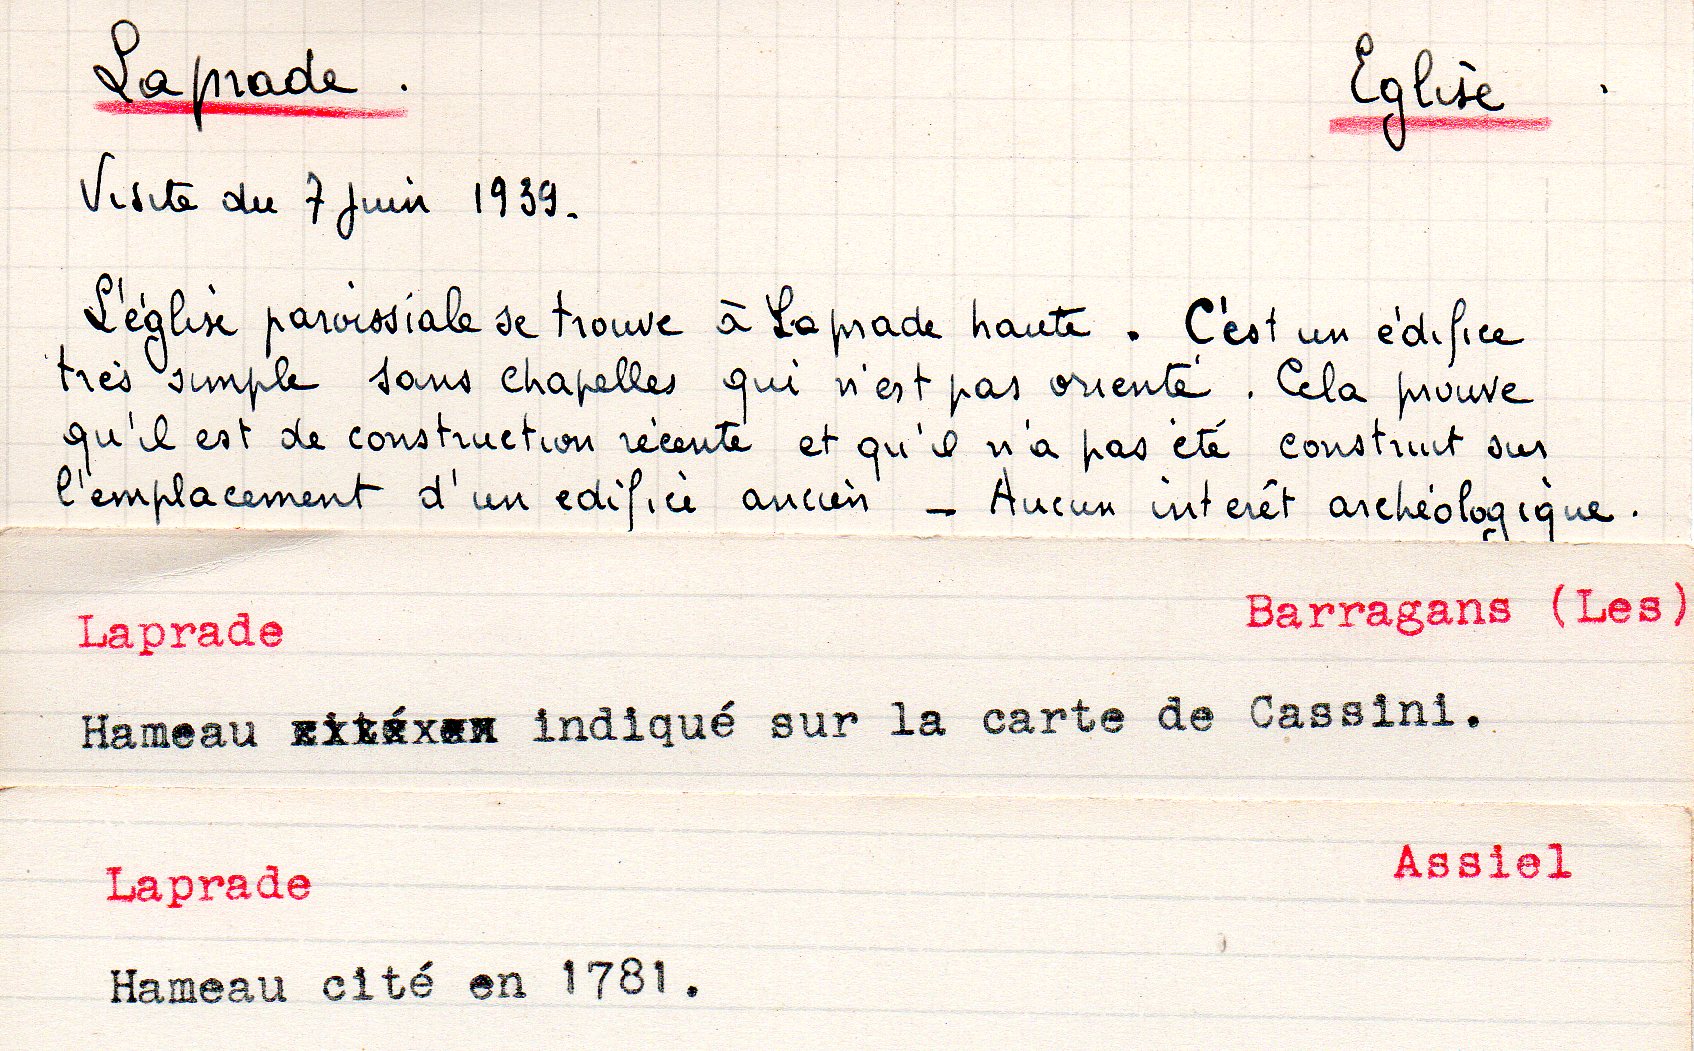 Laprade. Eglise.
Visite du 7 juin 1939.
L'église paroissiale se trouve à Laprade haute. C'est un édifice
très simple sans chapelles qui n'est pas orienté. Cela prouve
qu'il est de construction récente et qu'il n'a pas été construit sur
l'emplacement d'un edifice ancien - Aucun interêt archéologique.
Laprade Barragans (Les)
Hameau indiqué sur la carte de Cassini.
Laprade Assiel
Hameau cité en 1781.